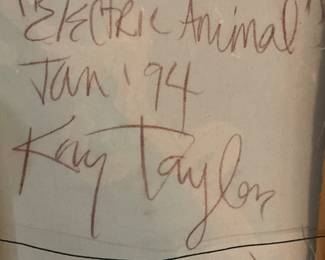 "Electric Animal"
Jan '94
Kay Taylor